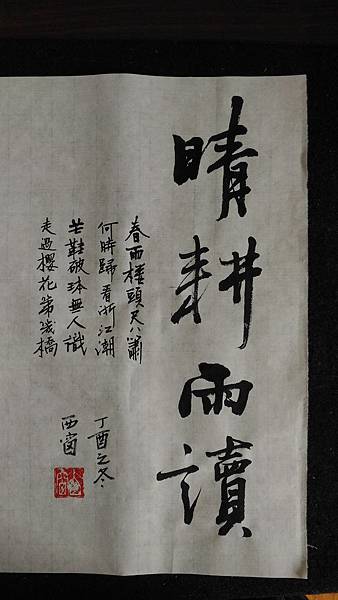 晴耕雨讀
春雨樓頭尺八簫
何時歸看浙江潮
芒鞋破缽無人識
走過櫻花第幾橋
丁酉之冬
西窗